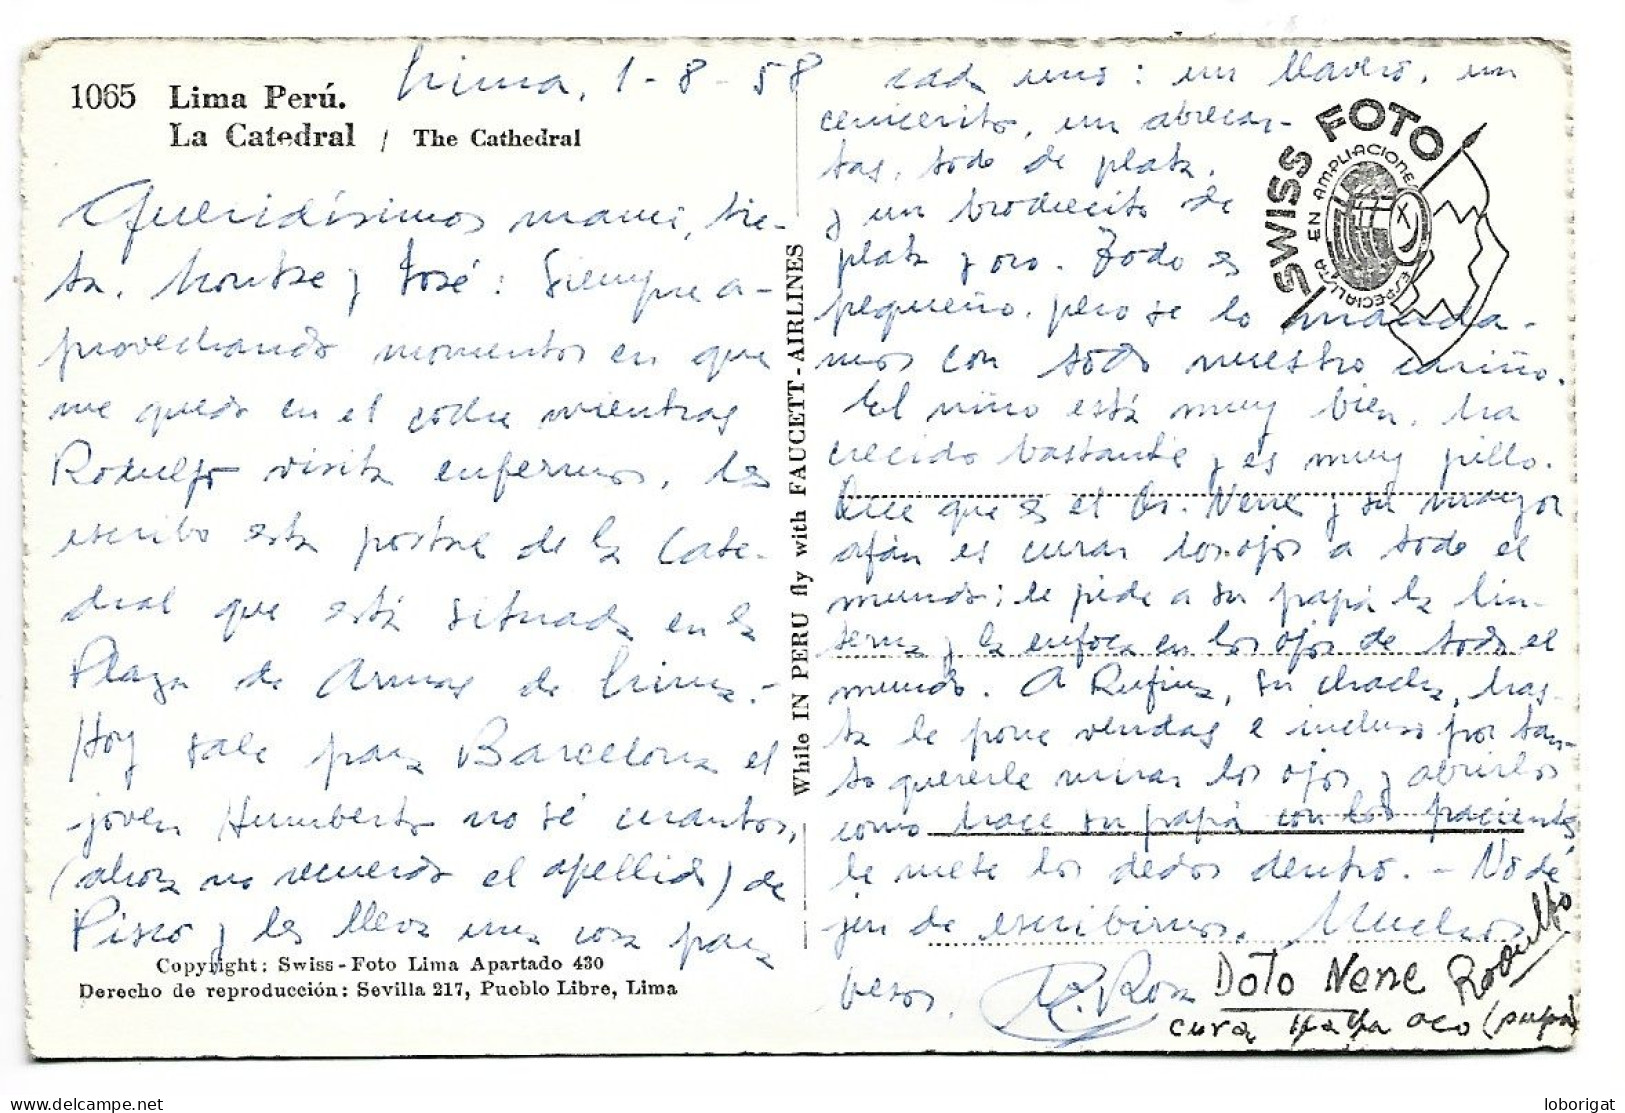 1065 Lima Perú.
La Catedral / The Cathedral
Lima, 1-8-58
Queridísimos mamá, tie-
ta, Montse y José: Siempre a-
provechando momentos en que
me quedo en el coche mientras
Rodulfo visita enfermos, les
escribo esta postal de la Cate-
dral que está situada en la
Plaza de Armas de Lima.-
Hoy sale para Barcelona el
joven Humberto no sé cuantos,
(ahora no recuerdo el apellido) de
Pisco y les lleva una cosa para
Copyright: Swiss-Foto Lima Apartado 430
Derecho de reproducción: Sevilla 217, Pueblo Libre, Lima
While IN PERU fly with FAUCETT-AIRLINES
cada uno: un llavero, un
cenicerito, un abrecar-
tas, todo de plata,
y un brochecito de
plata y oro. Todo es
pequeño, pero se lo manda-
mos con todo nuestro cariño.
El niño está muy bien, ha
crecido bastante y es muy pillo.
Dice que es el Dr. Nene y su mayor
afán es curar los ojos a todo el
mundo; le pide a su papá la lin-
terna y la enfoca en los ojos de todo el
mundo. A Rufina, su chacha, has-
ta le pone vendas e incluso por tan-
to quererle mirar los ojos y abrirlos
como hace su papá con los pacientes
le mete los dedos dentro. - No dé
jen de escribirnos. Muchos
besos. R. Rosa
Rodulfo
DOTO Nene
cura yaya oco (pupa)
SWISS FOTO
ESPECIALISTA EN AMPLIACIONE
loborigat